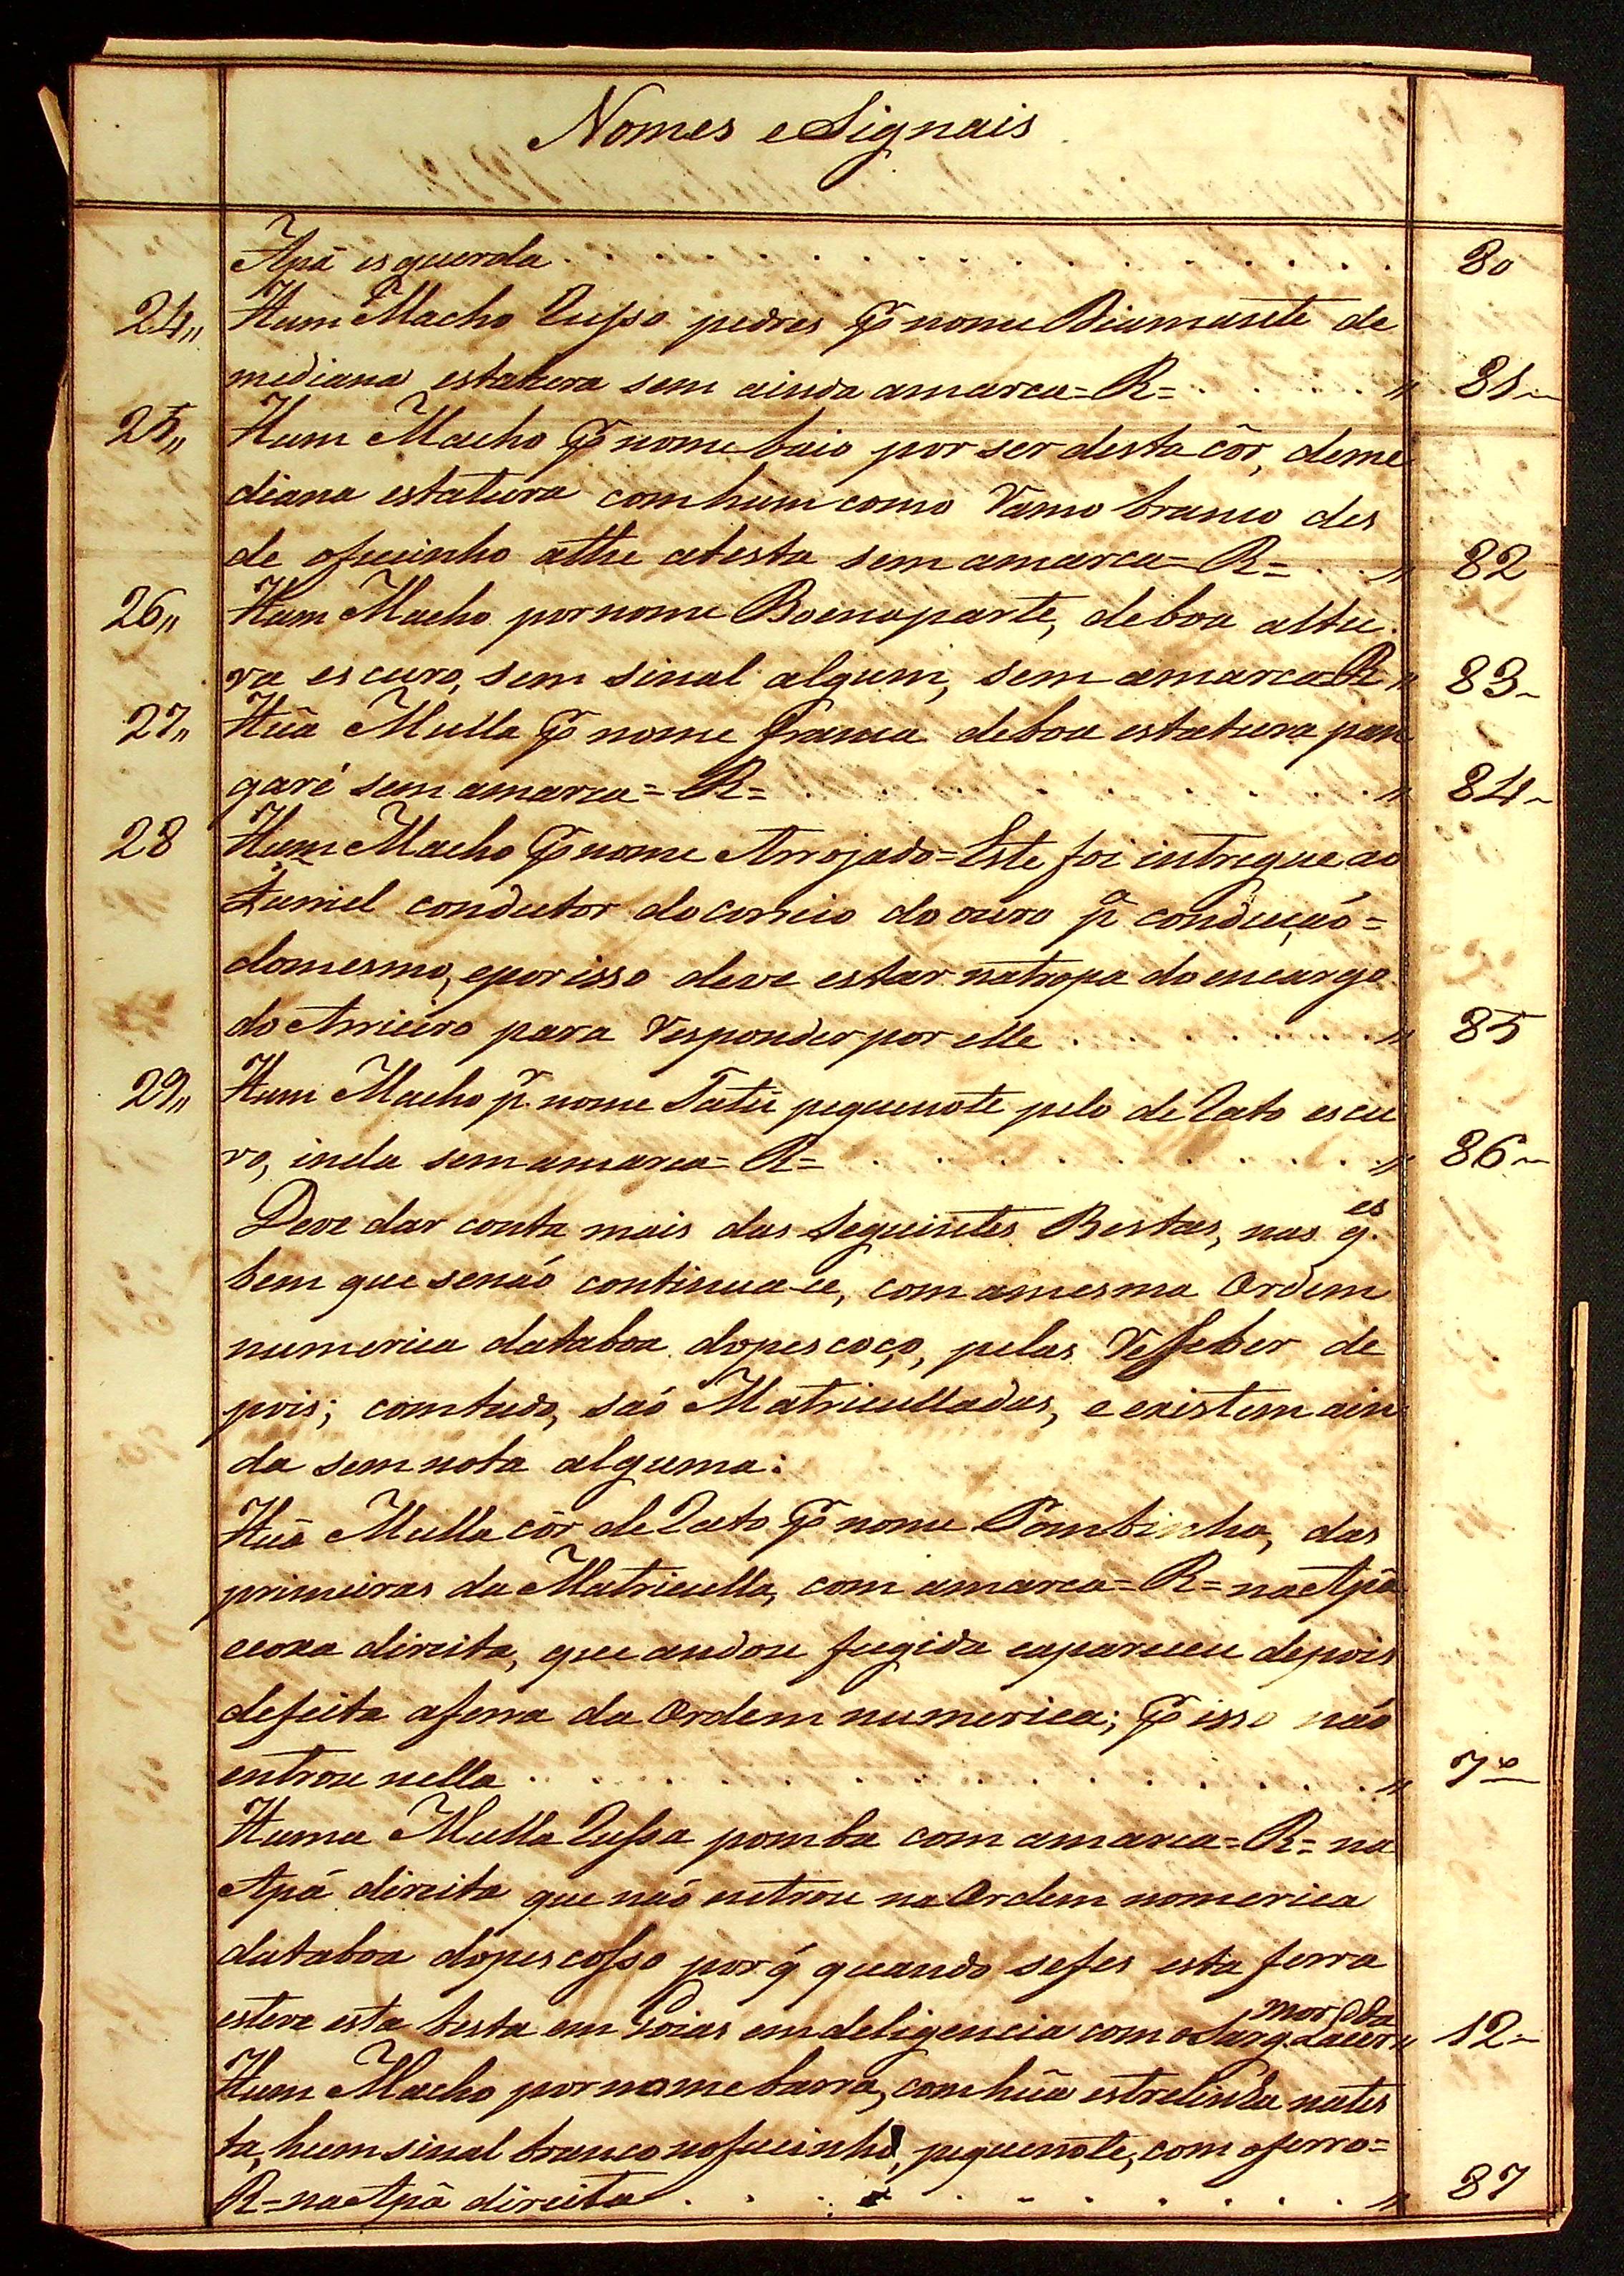 Nomes e Signais
Apá esquerda 80
24,, Hum Macho Russo pedres p.r nome Diamante de
mediana estatura sem ainda amarca = R = ,, 81
25,, Hum Macho p.r nome baio por ser desta côr, deme
diana estatura comhum como Ramo branco des
de ofucinho athe atesta sem amarca = R = ,, 82
26,, Hum Macho por nome Boenaparte, deboa altu
ra escuro, sem sinal algum, sem amarca R ,, 83
27,, Hũa Mulla p.r nome franca deboa estatura pan
garé sem amarca = R = ,, 84
28 Hum Macho p.r nome Arrojado = Este foi intregue ao
condutor do correio do ouro p.a condução =
domesmo, eporisso deve estar natropa do encargo
do Arrieiro para Responder por elle ,, 85
29,, Hum Macho p.r nome Tatú pequenote pelo de Rato escu
ro, inda sem amarca = R = ,, 86
Deve dar conta mais das Seguintes Bestas, nas q.es
bem que senaó continua-ce, com amesma Ordem
numerica databoa dopescoço, pelas Resseber de
pois; comtudo, saó Matriculladas, e existem ain
da sem nota alguma:
Hũa Mulla côr de Rato p.r nome Pombinha, das
primeiras da Matriculla, com amarca = R = na Apá
ecoxa direita, que andou fugida eapareceu depois
defeita aferra da Ordem numerica; p.r isso naó
entrou nella ,, 7
Huma Mulla Russa pomba com amarca = R = na
Apá direita que naó entrou na Ordem nomerica
databoa dopescosso por q́ quando sefes esta ferra
esteve esta besta em Goias emdeligencia com o Sarg. mor Lacer da ,, 12
Hum Macho por nome barra, com hũa estrelinda nates
ta, hum sinal branco nofucinho, pequenote, com oferro =
R = na Apá direita ,, 87